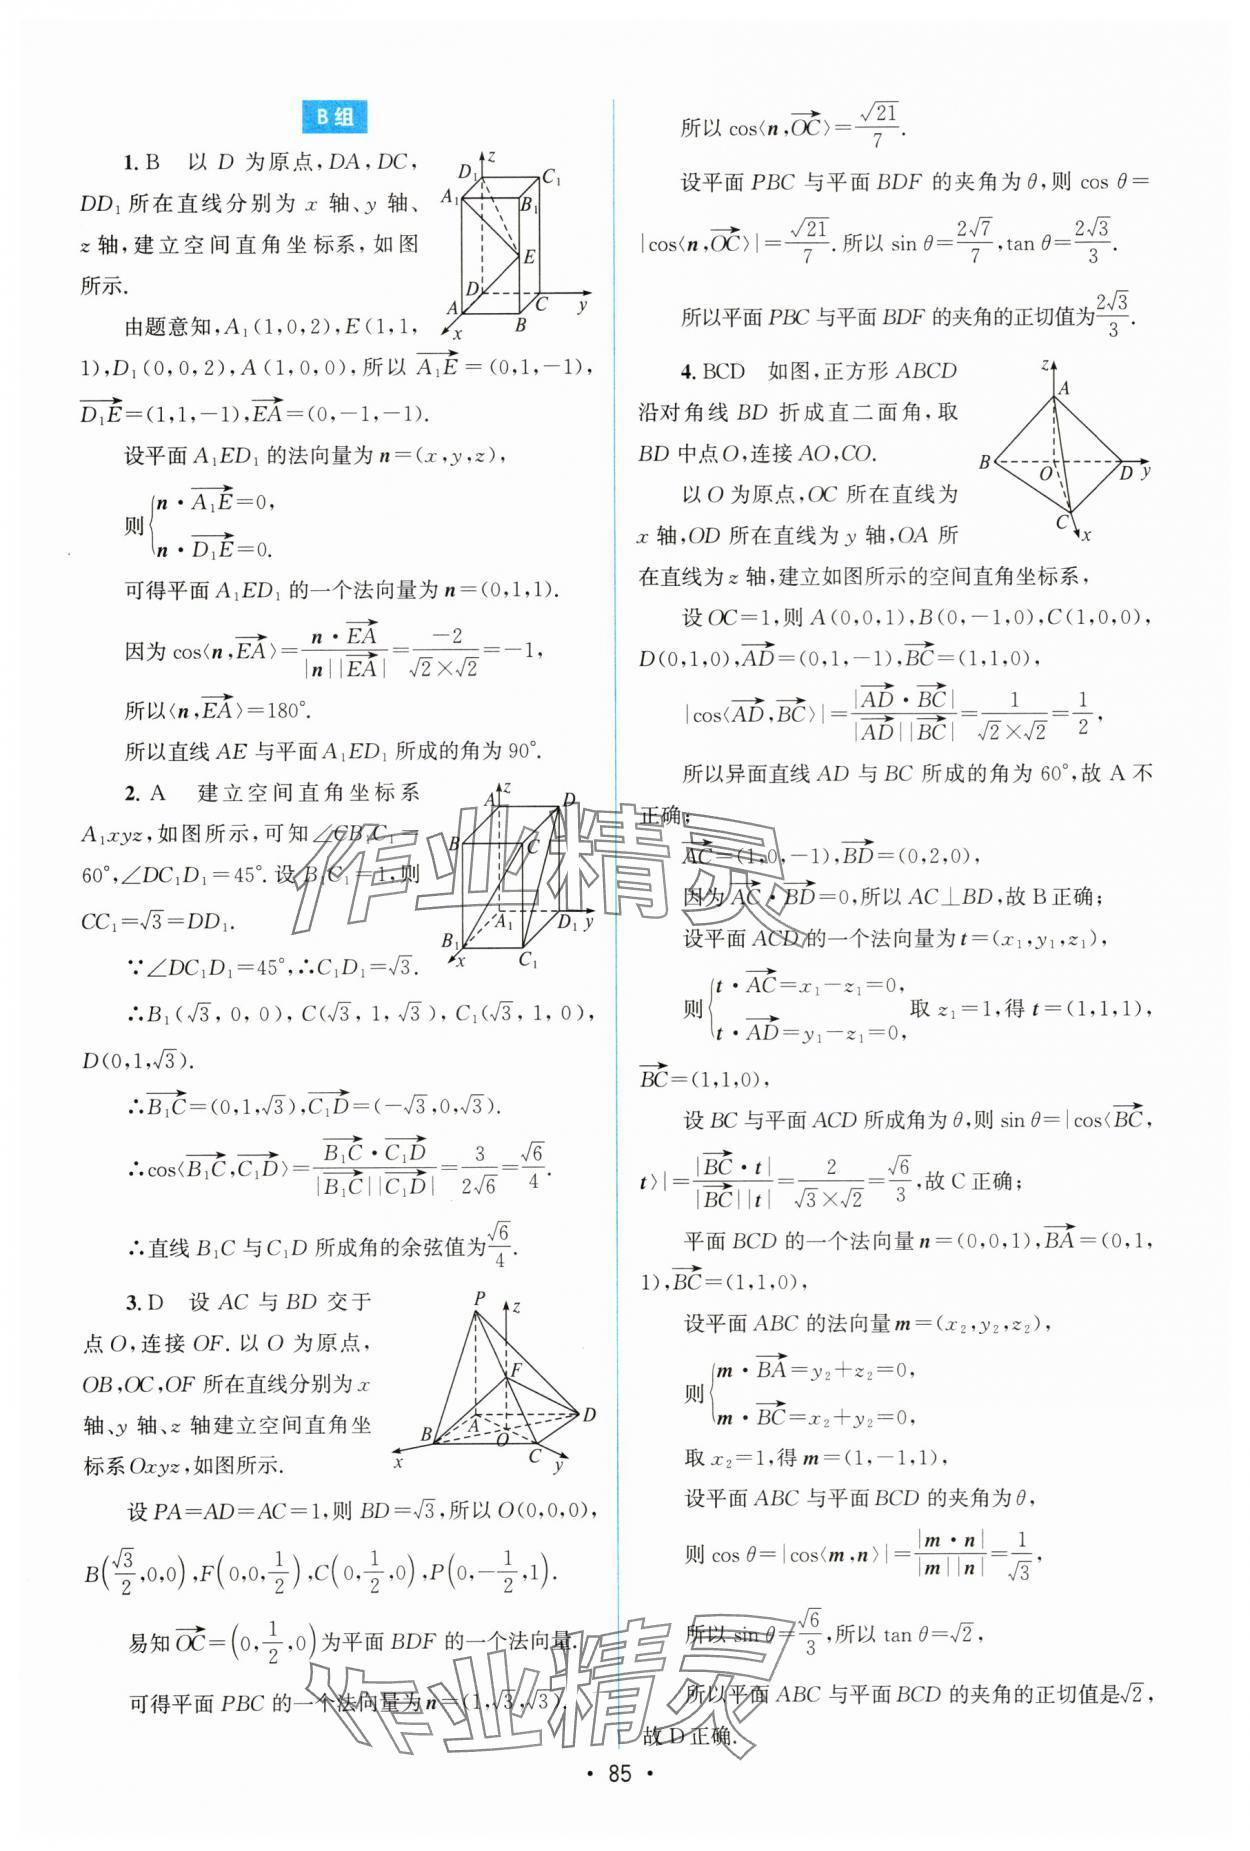 B组
1. B 以 D 为原点,DA,DC,
DD₁所在直线分别为 x 轴、y 轴、
z 轴,建立空间直角坐标系,如图
所示.
z
D₁
C₁
A₁
B₁
E
D
C
y
A
B
x
由题意知,A₁(1,0,2),E(1,1,
1),D₁(0,0,2),A(1,0,0),所以 $\overrightarrow{A_1E}$=(0,1,−1),
$\overrightarrow{D_1E}$=(1,1,−1),$\overrightarrow{EA}$=(0,−1,−1).
设平面 A₁ED₁ 的法向量为 n=(x,y,z),
则 { n·$\overrightarrow{A_1E}$=0,
n·$\overrightarrow{D_1E}$=0.
可得平面 A₁ED₁ 的一个法向量为 n=(0,1,1).
因为 cos⟨n,$\overrightarrow{EA}$⟩=$\frac{n·\overrightarrow{EA}}{|n||\overrightarrow{EA}|}$=$\frac{-2}{\sqrt{2}×\sqrt{2}}$=−1,
所以⟨n,$\overrightarrow{EA}$⟩=180°.
所以直线 AE 与平面 A₁ED₁ 所成的角为 90°.
2. A 建立空间直角坐标系
A₁xyz,如图所示,可知∠CB₁C₁=
60°,∠DC₁D₁=45°.设 B₁C₁=1,则
CC₁=√3=DD₁.
z
A
D
B
C
A₁
D₁ y
B₁
x
C₁
∵∠DC₁D₁=45°,∴C₁D₁=√3.
∴B₁(√3,0,0),C(√3,1,√3),C₁(√3,1,0),
D(0,1,√3).
∴$\overrightarrow{B_1C}$=(0,1,√3),$\overrightarrow{C_1D}$=(−√3,0,√3).
∴cos⟨$\overrightarrow{B_1C}$,$\overrightarrow{C_1D}$⟩=$\frac{\overrightarrow{B_1C}·\overrightarrow{C_1D}}{|\overrightarrow{B_1C}||\overrightarrow{C_1D}|}$=$\frac{3}{2\sqrt{6}}$=$\frac{\sqrt{6}}{4}$.
∴直线 B₁C 与 C₁D 所成角的余弦值为$\frac{\sqrt{6}}{4}$.
3. D 设 AC 与 BD 交于
点 O,连接 OF.以 O 为原点,
OB,OC,OF 所在直线分别为 x
轴、y 轴、z 轴建立空间直角坐
标系 Oxyz,如图所示.
P
z
F
A
D
B
O
C
x
y
设 PA=AD=AC=1,则 BD=√3,所以 O(0,0,0),
B($\frac{\sqrt{3}}{2}$,0,0),F(0,0,$\frac{1}{2}$),C(0,$\frac{1}{2}$,0),P(0,−$\frac{1}{2}$,1).
易知 $\overrightarrow{OC}$=(0,$\frac{1}{2}$,0)为平面 BDF 的一个法向量.
可得平面 PBC 的一个法向量为 n=(1,√3,√3).
所以 cos⟨n,$\overrightarrow{OC}$⟩=$\frac{\sqrt{21}}{7}$.
设平面 PBC 与平面 BDF 的夹角为 θ,则 cos θ=
|cos⟨n,$\overrightarrow{OC}$⟩|=$\frac{\sqrt{21}}{7}$.所以 sin θ=$\frac{2\sqrt{7}}{7}$,tan θ=$\frac{2\sqrt{3}}{3}$.
所以平面 PBC 与平面 BDF 的夹角的正切值为$\frac{2\sqrt{3}}{3}$.
4. BCD 如图,正方形 ABCD
沿对角线 BD 折成直二面角,取
BD 中点 O,连接 AO,CO.
z
A
B
O
D y
C
x
以 O 为原点,OC 所在直线为
x 轴,OD 所在直线为 y 轴,OA 所
在直线为 z 轴,建立如图所示的空间直角坐标系,
设 OC=1,则 A(0,0,1),B(0,−1,0),C(1,0,0),
D(0,1,0),$\overrightarrow{AD}$=(0,1,−1),$\overrightarrow{BC}$=(1,1,0),
|cos⟨$\overrightarrow{AD}$,$\overrightarrow{BC}$⟩|=$\frac{|\overrightarrow{AD}·\overrightarrow{BC}|}{|\overrightarrow{AD}||\overrightarrow{BC}|}$=$\frac{1}{\sqrt{2}×\sqrt{2}}$=$\frac{1}{2}$,
所以异面直线 AD 与 BC 所成的角为 60°,故 A 不
正确;
$\overrightarrow{AC}$=(1,0,−1),$\overrightarrow{BD}$=(0,2,0),
因为 $\overrightarrow{AC}$·$\overrightarrow{BD}$=0,所以 AC⊥BD,故 B 正确;
设平面 ACD 的一个法向量为 t=(x₁,y₁,z₁),
则 { t·$\overrightarrow{AC}$=x₁−z₁=0,
t·$\overrightarrow{AD}$=y₁−z₁=0, 取 z₁=1,得 t=(1,1,1),
$\overrightarrow{BC}$=(1,1,0),
设 BC 与平面 ACD 所成角为 θ,则 sin θ=|cos⟨$\overrightarrow{BC}$,
t⟩|=$\frac{|\overrightarrow{BC}·t|}{|\overrightarrow{BC}||t|}$=$\frac{2}{\sqrt{3}×\sqrt{2}}$=$\frac{\sqrt{6}}{3}$,故 C 正确;
平面 BCD 的一个法向量 n=(0,0,1),$\overrightarrow{BA}$=(0,1,
1),$\overrightarrow{BC}$=(1,1,0),
设平面 ABC 的法向量 m=(x₂,y₂,z₂),
则 { m·$\overrightarrow{BA}$=y₂+z₂=0,
m·$\overrightarrow{BC}$=x₂+y₂=0,
取 x₂=1,得 m=(1,−1,1),
设平面 ABC 与平面 BCD 的夹角为 θ,
则 cos θ=|cos⟨m,n⟩|=$\frac{|m·n|}{|m||n|}$=$\frac{1}{\sqrt{3}}$,
所以 sin θ=$\frac{\sqrt{6}}{3}$,所以 tan θ=√2,
所以平面 ABC 与平面 BCD 的夹角的正切值是√2,
故 D 正确.
作业精灵
作业精灵
· 85 ·